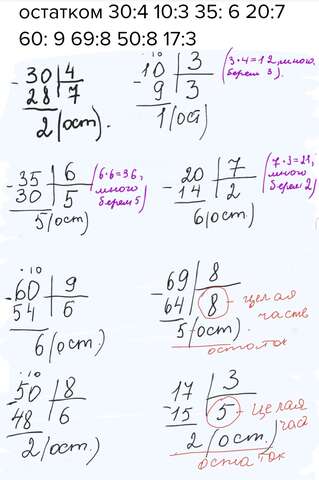 остатком 30:4 10:3 35: 6 20:7
60: 9 69:8 50:8 17:3
- 30 4
28 7
2 (ост).
- 10 3
9 3
1 (ост)
(3·4=12, много,
берем 3).
- 35 6
30 5
5 (ост)
(6·6=36,
много
берем 5)
- 20 7
14 2
6 (ост)
(7·3=21,
много
берем 2)
- 60 9
54 6
6 (ост.)
- 69 8
64 8 - целая
часть
5 (ост).
остаток
- 50 8
48 6
2 (ост.)
17 3
- 15 5 - целая
час
2 (ост.)
остаток